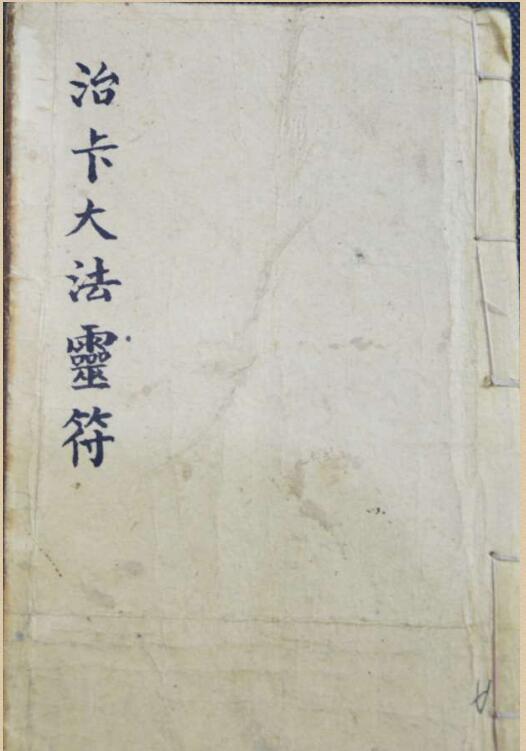 治卡大法靈符